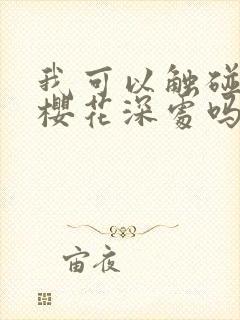 我可以触碰
樱花深处吗
宙夜